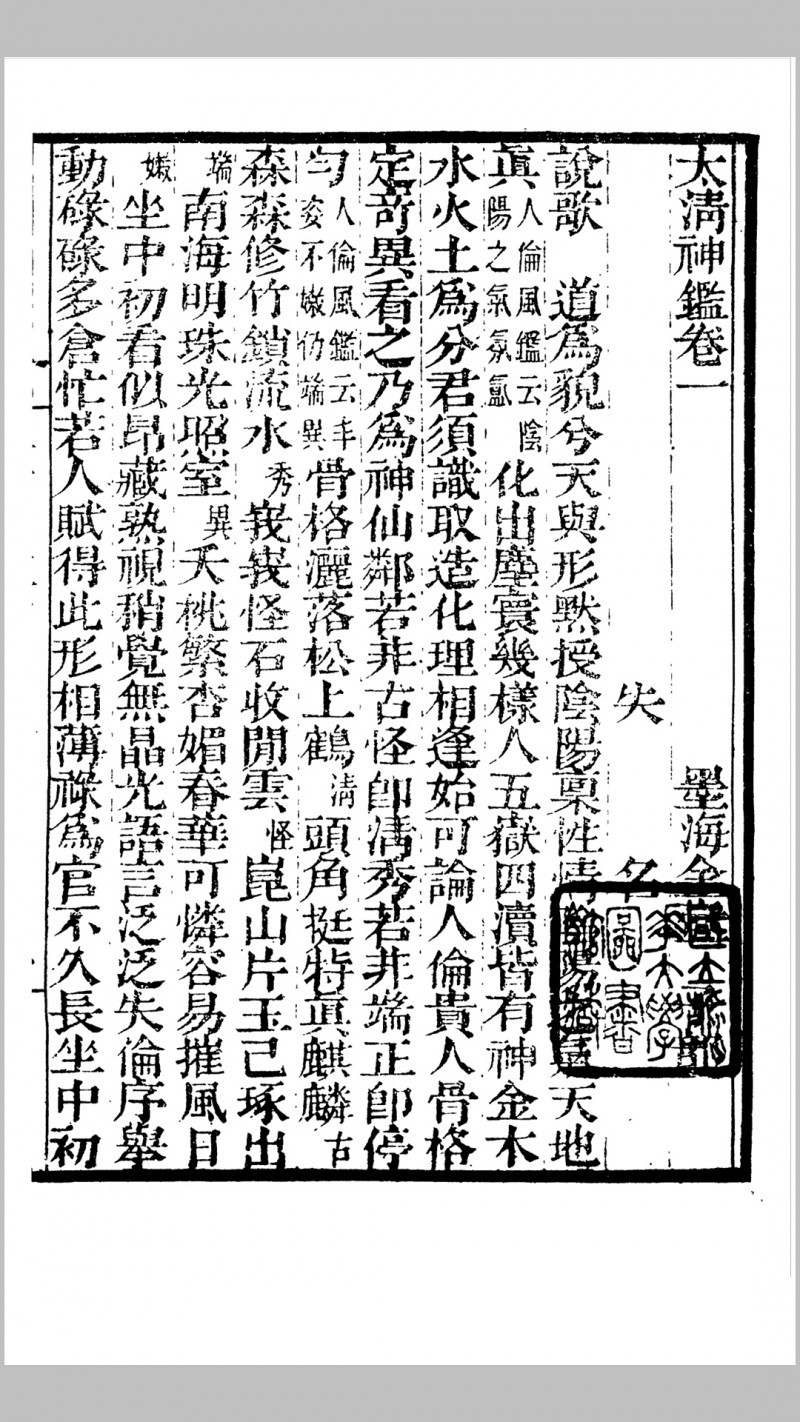 太清神鑑卷一 墨海金
失 名
說歌 道爲貌兮天與形默授陰陽稟性情 天地
眞人倫風鑑云陰陽之氣氤氳化出塵寰幾樣人五嶽四瀆皆有神金木
水火土爲分君須識取造化理相逢始可論人倫貴人骨格
定奇異看之乃爲神仙鄰若非古怪卽淸秀若非端正卽停
勻人倫風鑑云丰姿不嫩仍端異骨格灑落松上鶴淸頭角挺特眞麒麟古
森森修竹鎖流水秀峩峩怪石收閒雲怪崑山片玉已琢出
端南海明珠光照室異夭桃繁杏媚春華可憐容易摧風日
嫩坐中初看似昂藏熟視稍覺無晶光語言泛泛失倫序舉
動碌碌多倉忙若人賦得此形相薄祿爲官不久長坐中初
大學
圖書